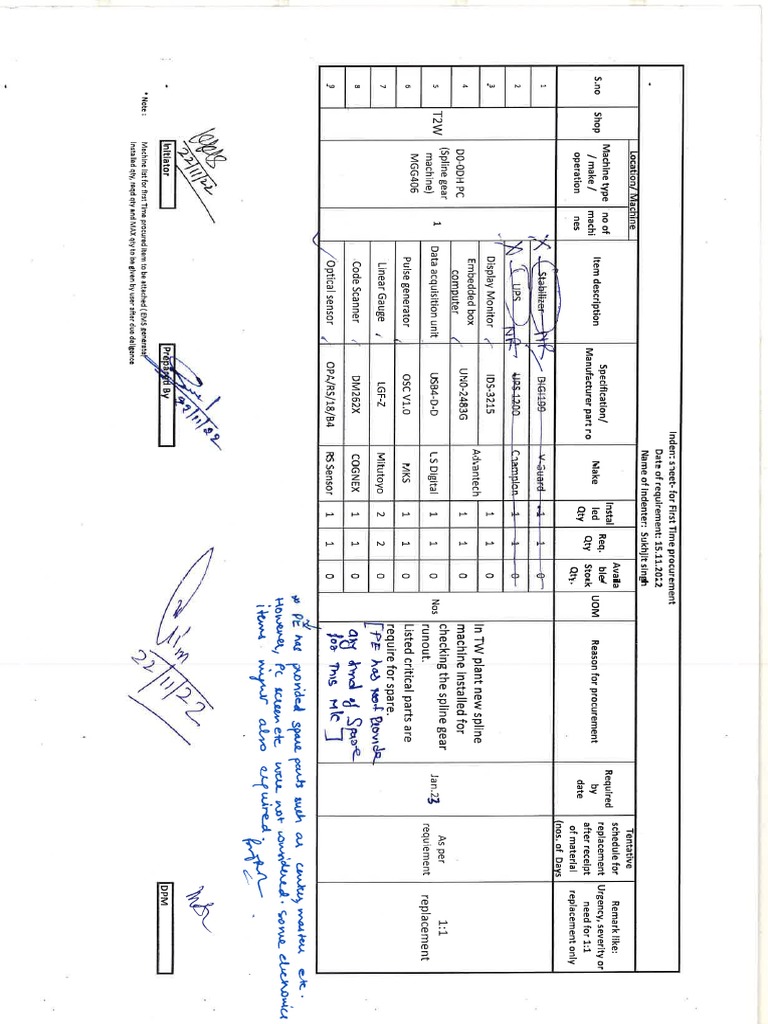 Indent sheet- for First Time procurement
Date of requirement: 15.11.2012
Name of Indenter: Sukhjit singh
Location/ Machine
S.no Shop Machine type / make / operation no of machi nes Item description Specification/ Manufacturer part no Make Instal led Qty Req. Qty Availa ble/ Stock Qty. UOM Reason for procurement Required by date Tentative schedule for replacement after receipt of material (nos. of Days Remark like: Urgency, severity or need for 1:1 replacement only
1 Stabilizer DIGI199 V-Guard 1 1 0
X NR
2 UPS UPS 1200 Champion 1 1 0
X NR
3 Display Monitor IDS-3215 1 1 0
4 Embedded box computer UNO-2483G Advantech 1 1 0
5 Data acquisition unit USB4-D-D LS Digital 1 1 0
6 Pulse generator OSC V1.0 MKS 1 1 0
7 Linear Gauge LGF-Z Mitutoyo 2 2 0
8 Code Scanner DM262X COGNEX 1 1 0
9 Optical sensor OPA/RS/18/B4 RS Sensor 1 1 0
T2W
D0-0DH PC
(Spline gear
machine)
MGG406
1
Nos
In TW plant new spline
machine installed for
checking the spline gear
runout.
Listed critical parts are
require for spare.
[PE has not Provide
any kind of Spare
for This M/c]
Jan.23
As per
requiement
1:1
replacement
* PE has provided spare parts such as centre, masters etc.
However, PC screen etc were not considered. Some electronics
items might also required.
22/11/22
Initiator
22/11/22
Prepared By
22/11/22
DPM
* Note : Machine list for first Time procured item to be attached ( EMS generate
Installed qty, reqd qty and MAX qty to be given by user after due deligence